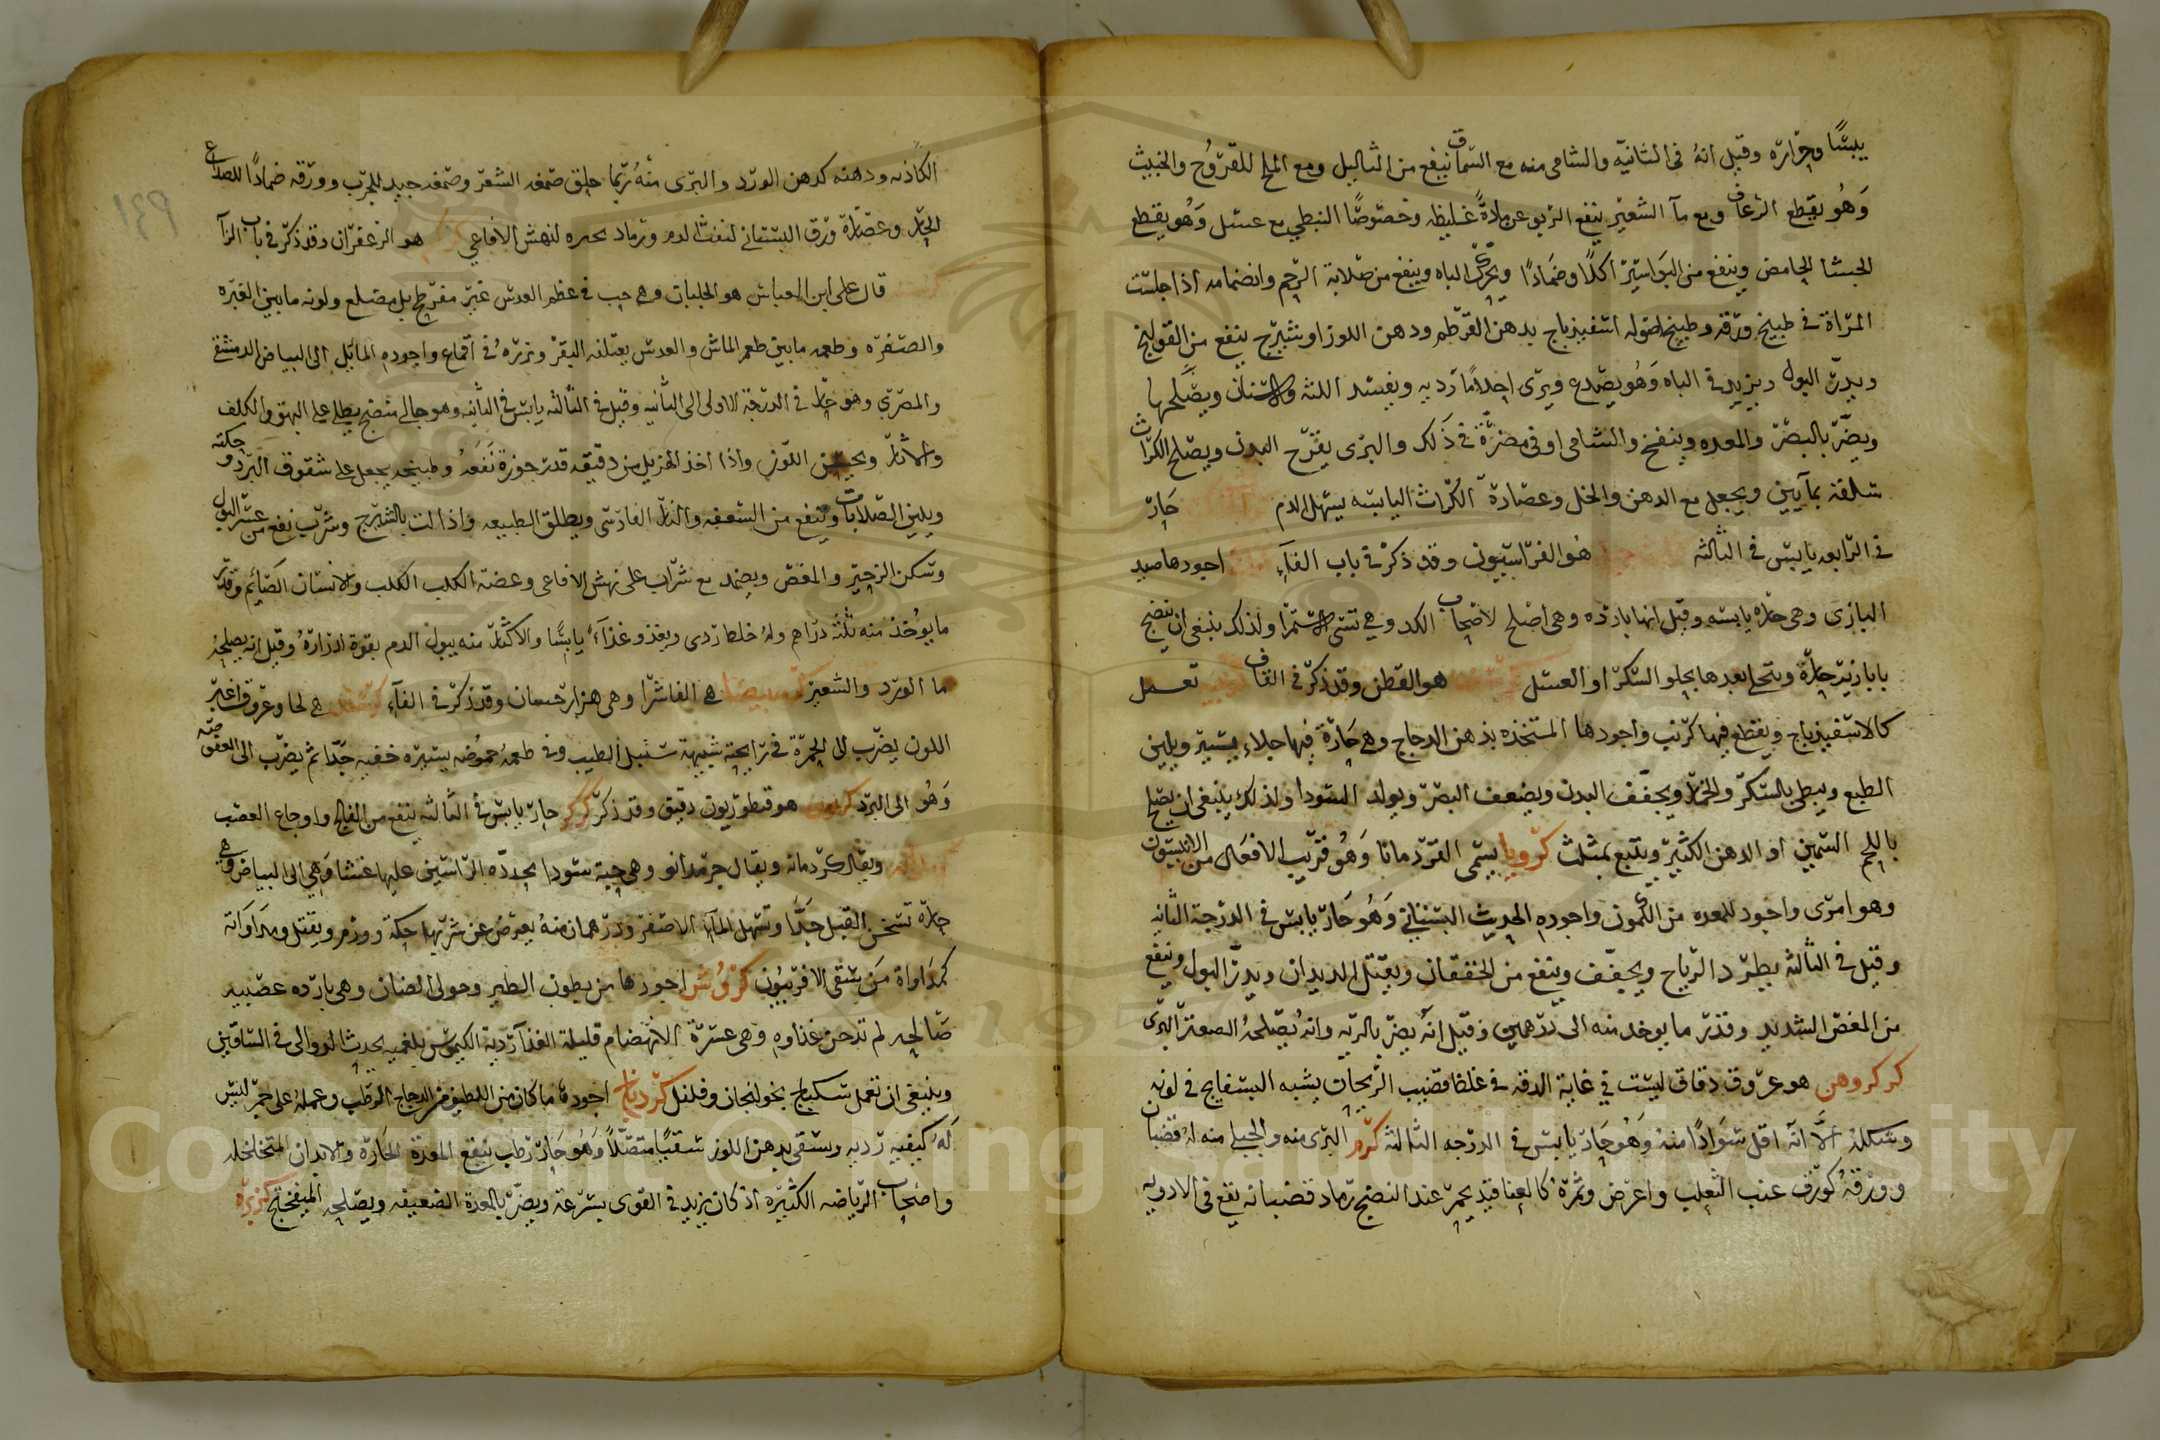 يبسًا وحرارة وقيل انه فى الثانيه والشامى منه مع السماق ينفع من الثاليل ومع الملح للقروح والخبيث
وهو يقطع الرعاف ومع مآ الشعير ينفع الربو عن مادة غليظه وخصوصًا النبطي مع عسل وهو يقطع
الجشا الحامض وينفع من البواسير اكلا وضمادًا ويحرك الباه وينفع من صلابة الرحم وانضمامه اذا جلست
المراة فى طبيخ ورقه وطبيخ اصوله اسفيذباج بدهن القرطم ودهن اللوز او شيرج ينفع من القولنج
ويدر البول ويزيد فى الباه وهو يصدع ويرى احلامًا رديه ويفسد اللثه والاسنان ويصلحها
ويضر بالبصر والمعده وينفخ والشامى اوفى مضرة فى ذلك والبرى يقرح البدن ويصلح الكراث
سلقه بمآيين ويجعل مع الدهن والخل وعصارة الكراث اليابسه يسهل الدم حار
فى الرابعه يابس فى الثالثه هو الفراسيون وقد ذكر فى باب الفآء اجودها صيد
البازى وهى حاره يابسه وقيل انها بارده وهى اصلح لاصحاب الكد وهى تنسى الاستمرا ولذلك ينبغى ان ينضج
بابازير حارة ويتحلى بعدها بحلو السكر او العسل هو القطن وقد ذكر فى القاف تعمل
كالاسفيذباج ويقطع فيها كرنب واجودها المتخذه بدهن الدجاج وهى حارة فيها جلاء يسير ويلين
الطبع ويبطى بالسكر والخمار ويجفف البدن ويضعف البصر ويولد السودا ولذلك ينبغى ان يصلح
باللحم السمين او الدهن الكثير ويتبع بمثلث كرويا يسمى القردمانا وهو قريب الافعال من الانيسون
وهو امرى واجود للمعده من الكمون واجوده الحديث البستاني وهو حار يابس فى الدرجة الثانيه
وقيل فى الثالثه يطرد الرياح ويجفف وينفع من الخفقان ويقتل الديدان ويدر البول وينفع
من المغص الشديد وقدر ما يوخذ منه الى درهمين وقيل انه يضر بالريه وانه يصلحه الصعتر البرى
كركروهن هو عروق دقاق ليست في غاية الدقه فى غلظ قضيب الريحان يشبه البسفايج فى لونه
وشكله الا انه اقل سوادًا منه وهو حار يابس فى الدرجه الثالثه كرم البرى منه والجبلى منه له قضبان
وورقه كورق عنب الثعلب واعرض وثمره كالعناقيد يحمر عند النضج رماد قضبانه يقع فى الادويه
الكاذنه ودهنه كدهن الورد والبرى منه ربما حلق صمغه الشعر وصمغه جيد للجرب وورقه ضمادًا للصداع
الحار وعصارة ورق البستانى لنفث الدم ورماد لنهش الافاعي هو الزعفران وقد ذكر فى باب الزآ
قال على ابن العباس هو الجلبان وهى حب فى عظم العدس غير مفرطح بل مضلع ولونه ما بين الغبره
والصفره وطعمه ما بين طعم الماش والعدس يعتلفه البقر وبزره فى اقماع واجوده المايل الى البياض الدمشقى
والمصري وهو حار فى الدرجة الاولى الى الثانيه وقيل فى الثالثه يابس فى الثانيه وهو جالى منضج يطلى على البهق والكلف
والاثار ويحسن اللون واذا اخذ الهزيل من دقيقه قدر جوزة نفعه وطبيخه يجعل على شقوق البرد وحكته
ويلين الصلابات وينفع من السعفه والنار الفارسى ويطلق الطبيعه واذا لت بالشيرج وشرب نفع من عسر البول
وسكن الزحير والمغص ويضمد مع شراب على نهش الافاعى وعضة الكلب الكلب والانسان الصايم وقدر
ما يوخذ منه ثلثه دراهم وله خلط ردى ويغذو غذآء يابسًا والاكثار منه يبول الدم بقوة ادراره وقيل انه يصلحه
ما الورد والشعير كرمه بيضا هى الفاشرا وهى هزارجسان وقد ذكر فى الفآء هى لحا وعروق اغبر
اللون يضرب الى الحمرة فى رايحته شبيهة سنبل الطيب وفى طعمه حموضه يسيره خفيه جدًا ثم يضرب الى العفوصه
وهو الى البرد كريون هو قنطوريون دقيق وقد ذكر كركر حار يابس فى الثالثه ينفع من الفالج واوجاع العصب
ويقال كردمانه ويقال حرمدانو وهى حبة سودا محدده الراسين عليها غشا وهي الى البياض وهى
حاره تسخن القبل جدًا وتسهل المآء الاصفر ودرهمان منه يعرض عن شربها حكة وورم ويقتل ومداواته
كمداواة من سقى الافربيون كروش اجودها من بطون الطير وحولى الضان وهى بارده عصبيه
صالحه لم تدخر غذاوه وهى عسرة الانهضام قليلة الغذآء ردية الكيموس بلغميه يحدث الدوالى فى الساقين
وينبغى ان تعمل سكباج بخولنجان وفلفل كردناج اجودها ما كان من اللطيف من الدجاج الرطب وعمله على جمر ليس
له كيفيه رديه ويسقى بدهن اللوز سقيًا متصلًا وهو حار رطب ينفع المعدة الحارة والابدان المتخلخله
واصحاب الرياضه الكثيره اذ كان يزيد فى القوى بسرعة ويضر بالمعدة الضعيفه ويصلحه الميفختج كزبره
Copyright © King Saud University